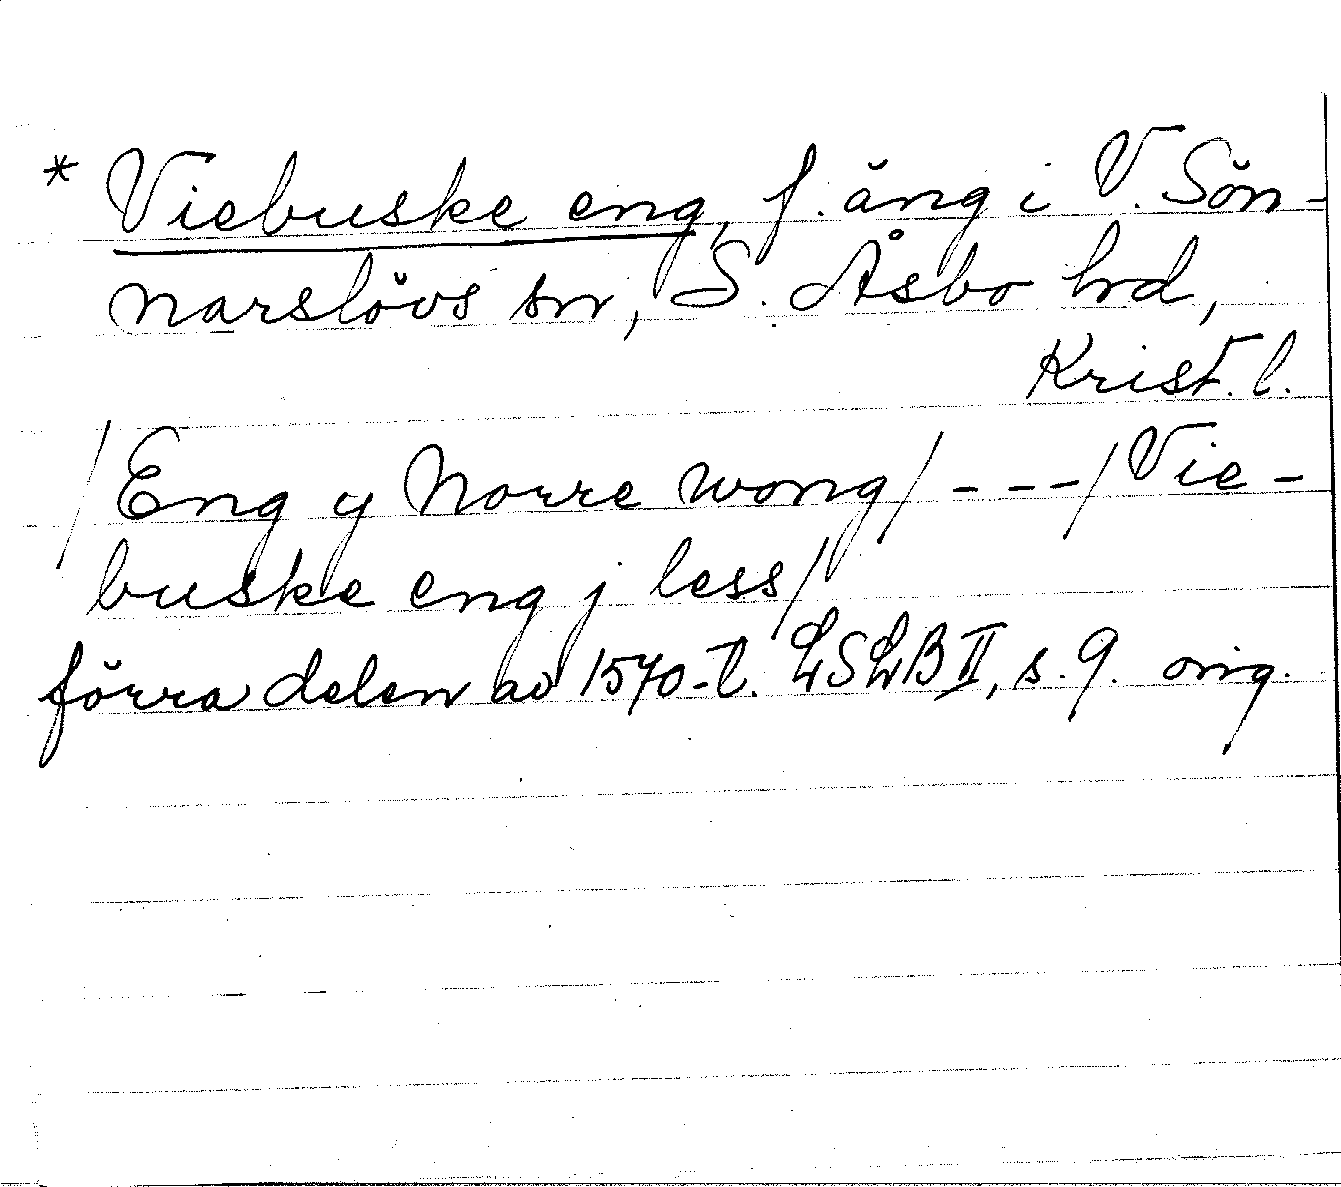 * Viebuske eng, f. äng i V. Sön-
narslövs sn, S. Åsbo hd,
Krist. l.
/Eng y Norre wong/ - - - /Vie-
buske eng j less/
förra delen av 1570-t. LSLB II, s. 9. orig.